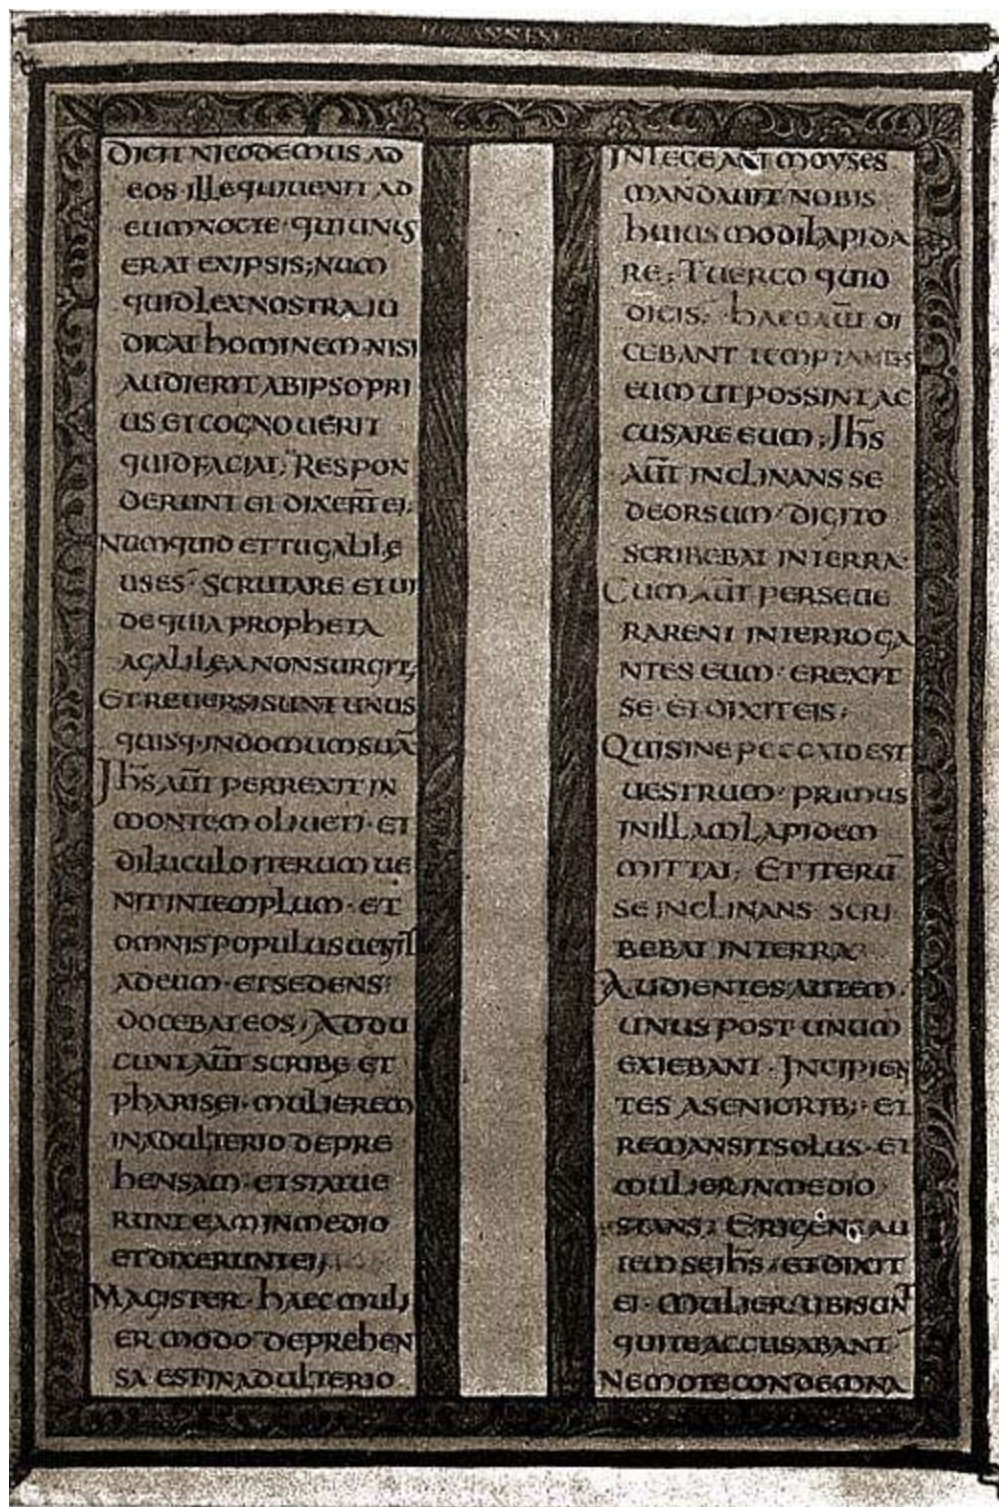 DICIT NICODEMUS AD
EOS ILLE QUI UENIT AD
EUM NOCTE · QUI UNUS
ERAT EX IPSIS; NUM
QUID LEX NOSTRA IU
DICAT HOMINEM · NISI
AUDIERIT AB IPSO PRI
US ET COGNOUERIT
QUID FACIAT; RESPON
DERUNT ET DIXER̄T EI;
NUMQUID ET TU GALILE
US ES · SCRUTARE ET UI
DE QUIA PROPHETA
A GALILEA NON SURGIT;
ET REUERSI SUNT UNUS
QUISQ · IN DOMUM SUĀ
IH̄S AŪT PERREXIT IN
MONTEM OLIUETI · ET
DILUCULO ITERUM UE
NIT IN TEMPLUM · ET
OMNIS POPULUS UENIT
AD EUM · ET SEDENS
DOCEBAT EOS; ADDU
CUNT AŪT SCRIBE ET
PHARISEI · MULIEREM
IN ADULTERIO DEPRE
HENSAM · ET STATUE
RUNT EAM IN MEDIO
ET DIXERUNT EI;
MAGISTER · HAEC MULI
ER MODO DEPREHEN
SA EST IN ADULTERIO
IN LEGE AŪT MOYSES
MANDAUIT NOBIS
HUIUS MODI LAPIDA
RE; TU ERGO QUID
DICIS; HAEC AŪT DI
CEBANT TEMPTANTES
EUM UT POSSINT AC
CUSARE EUM; IH̄S
AŪT INCLINANS SE
DEORSUM DIGITO
SCRIBEBAT IN TERRA·
CUM AŪT PERSEUE
RARENT INTERROGA
NTES EUM · EREXIT
SE · ET DIXIT EIS;
QUI SINE PECCATO EST
UESTRUM · PRIMUS
IN ILLAM LAPIDEM
MITTAT; ET ITERŪ
SE INCLINANS SCRI
BEBAT IN TERRA
AUDIENTES AUTEM
UNUS POST UNUM
EXIEBANT · INCIPIEN
TES A SENIORIB; · ET
REMANSIT SOLUS · ET
MULIER IN MEDIO
STANS; ERIGENS AU
TEM SE IH̄S · ET DIXIT
EI · MULIER UBI SUNT
QUI TE ACCUSABANT
NEMO TE CONDEMNA